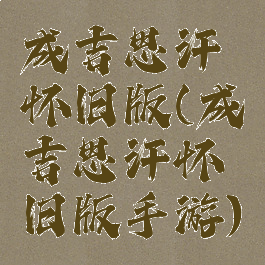 成吉思汗
怀旧版(成
吉思汗怀
旧版手游)